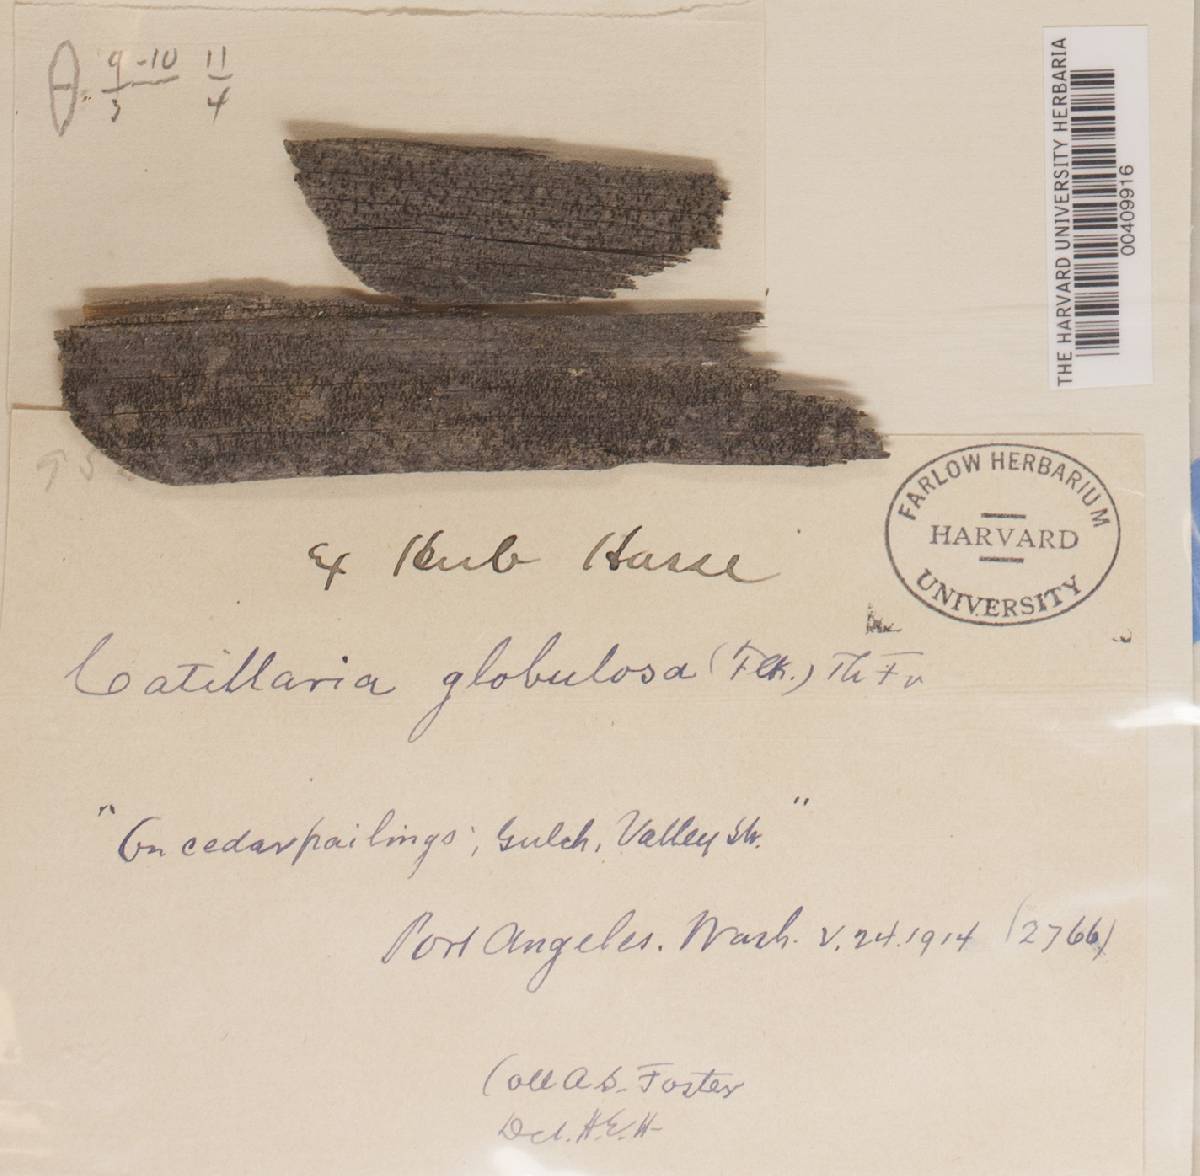 9-10 11
3 4
THE HARVARD UNIVERSITY HERBARIA
00409916
FARLOW HERBARIUM
HARVARD
UNIVERSITY
Ex Herb Hasse
Catillaria globulosa (Flk.) Th Fr
"On cedar pailings; Gulch, Valley St."
Port Angeles. Wash. V.24.1914 (2766)
Coll A S. Foster
Det. H.E.H